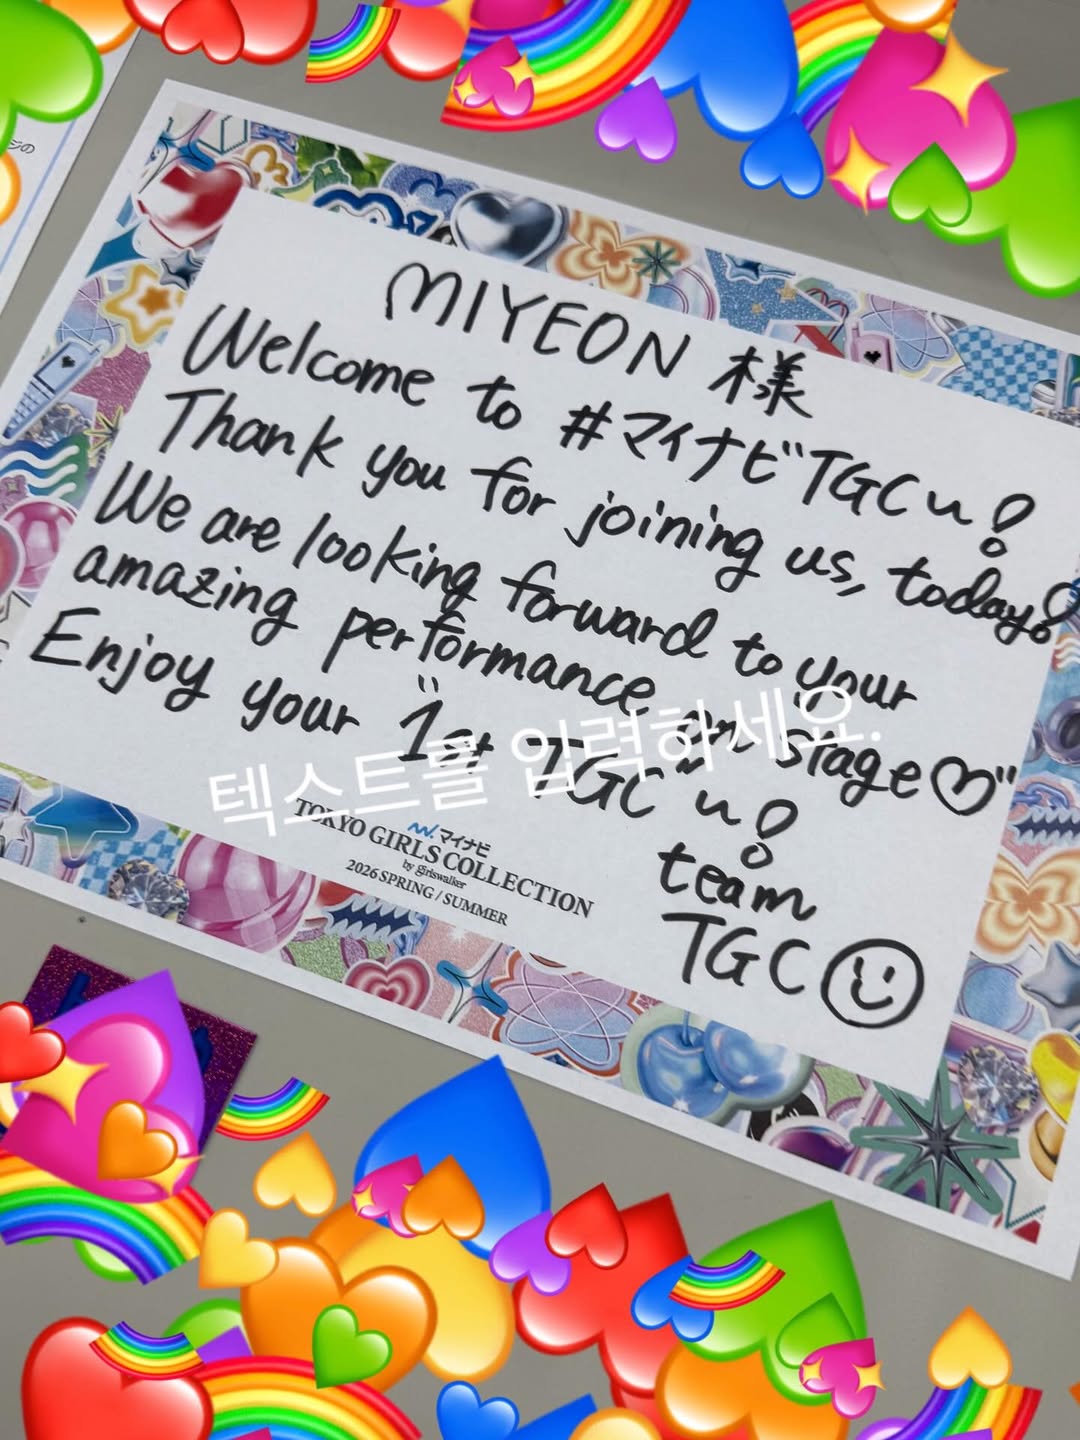 MIYEON 様
Welcome to #マイナビTGC~!
Thank you for joining us, today!
We are looking forward to your
amazing performance on stage♡"
Enjoy your "1st TGC"~!
텍스트를 입력하세요.
team
TGC
マイナビ
TOKYO GIRLS COLLECTION
by girlswalker
2026 SPRING / SUMMER
ジの